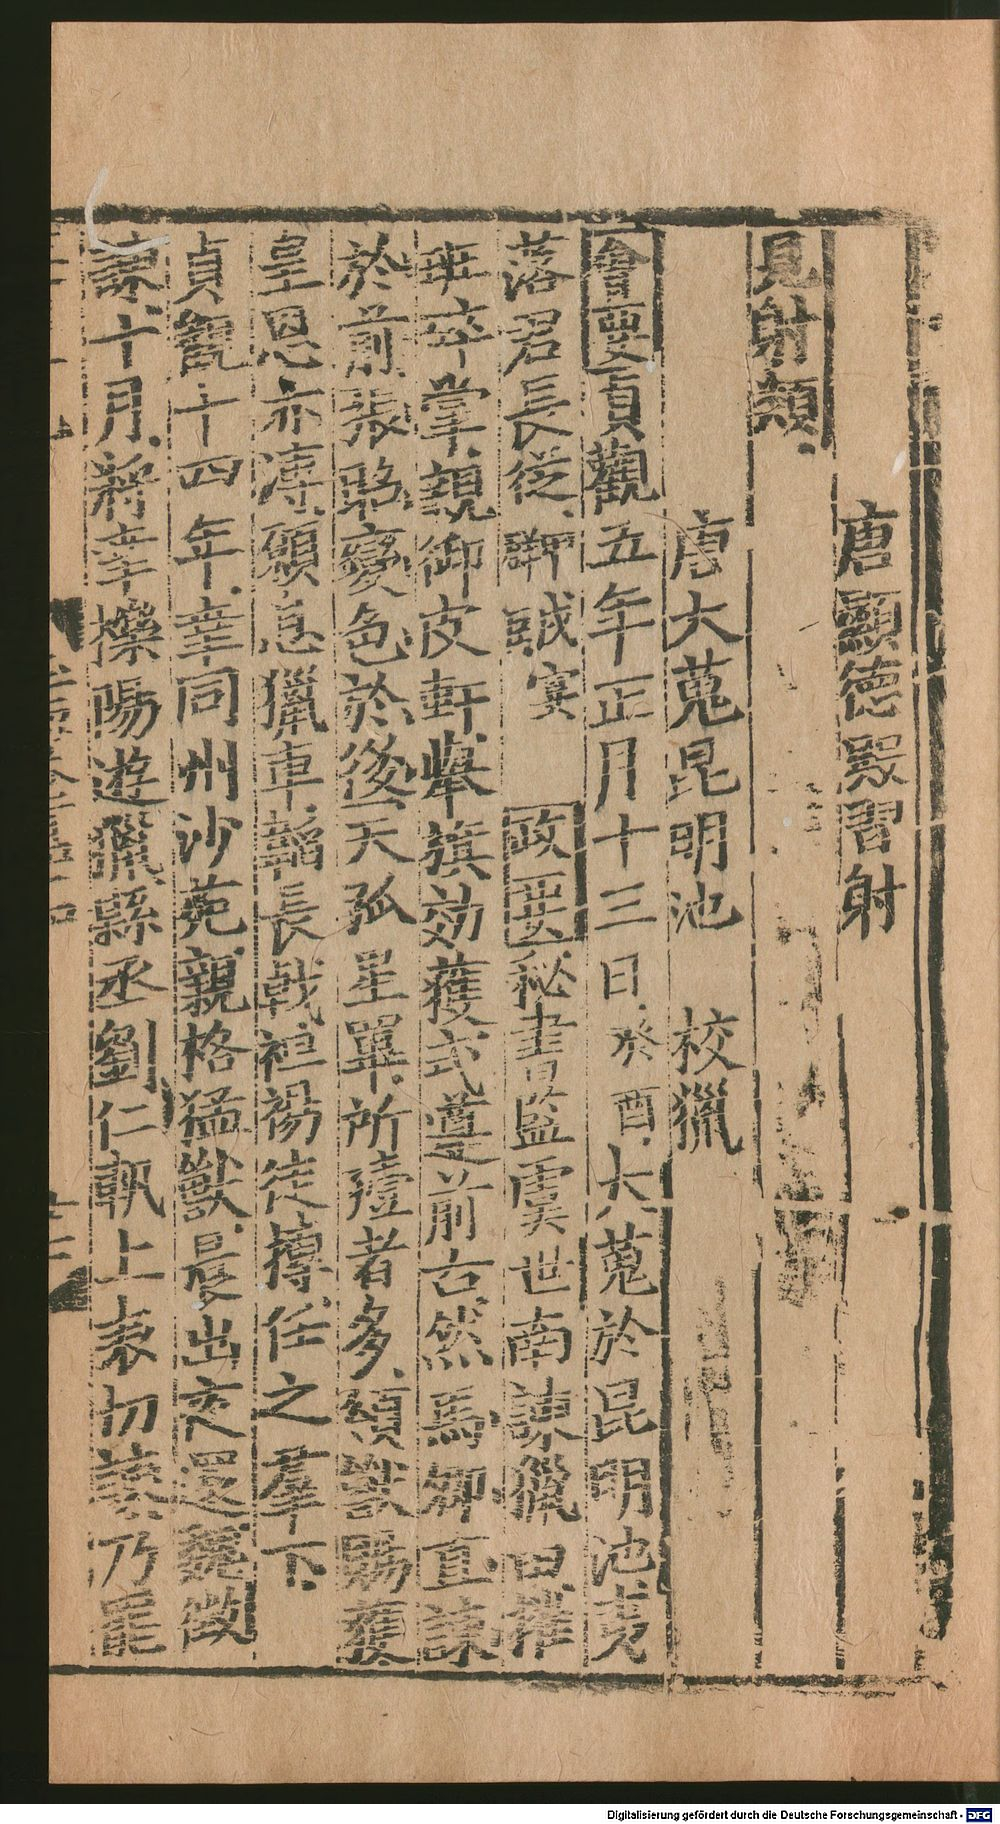 唐顯德殿習射
見射類
唐大蒐昆明池 校獵
會要貞觀五年正月十三日癸酉大蒐於昆明池夷
落君長從 宴 政要秘書監虞世南諫獵曰
掌親御皮軒舉旗効獲式遵前古然馬卿直諫
於前張昭變色於後天弧星畢所殪者多頒獸賜獲
皇恩亦溥願息獵車韜長戟袒裼徒搏任之羣下
貞觀十四年幸同州沙苑親格猛獸晨出夜還魏徵
諫十月將幸櫟陽遊獵縣丞劉仁軌上表切諫乃罷
Digitalisierung gefördert durch die Deutsche Forschungsgemeinschaft - DFG